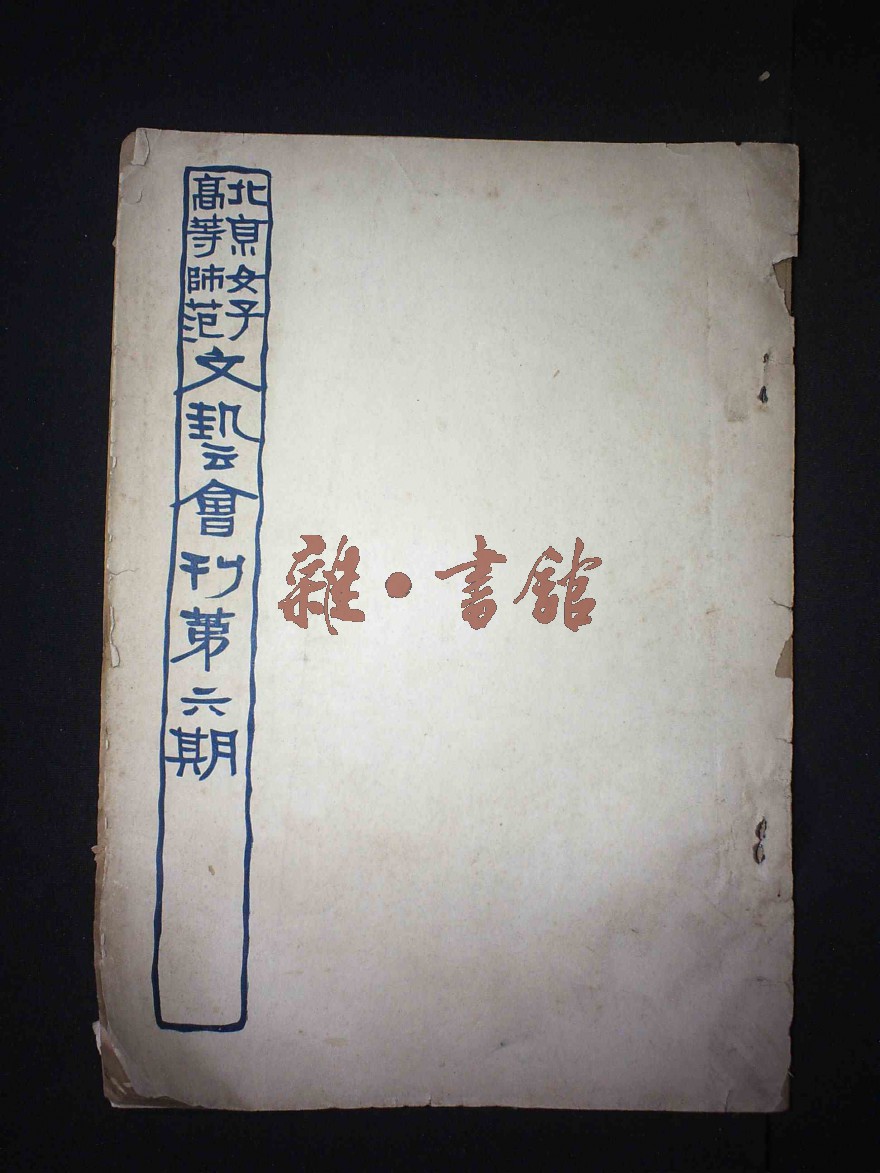 北京女子
高等師范
文埶云會刊第六期
雜·書館